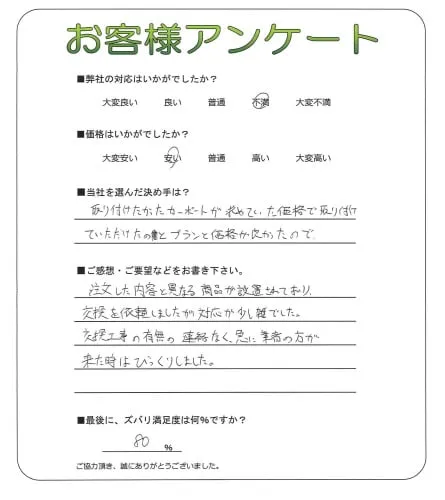 お客様アンケート
■弊社の対応はいかがでしたか？
大変良い 良い 普通 不満 大変不満
■価格はいかがでしたか？
大変安い 安い 普通 高い 大変高い
■当社を選んだ決め手は？
取り付けたかったカーポートが求めていた価格で取り付け
ていただけたのとプランと価格が良かったので
■ご感想・ご要望などをお書き下さい。
注文した内容と異なる商品が設置されており、
交換を依頼しましたが対応が少し雑でした。
交換工事の有無の連絡なく、急に業者の方が
来た時はびっくりしました。
■最後に、ズバリ満足度は何％ですか？
80 %
ご協力頂き、誠にありがとうございました。